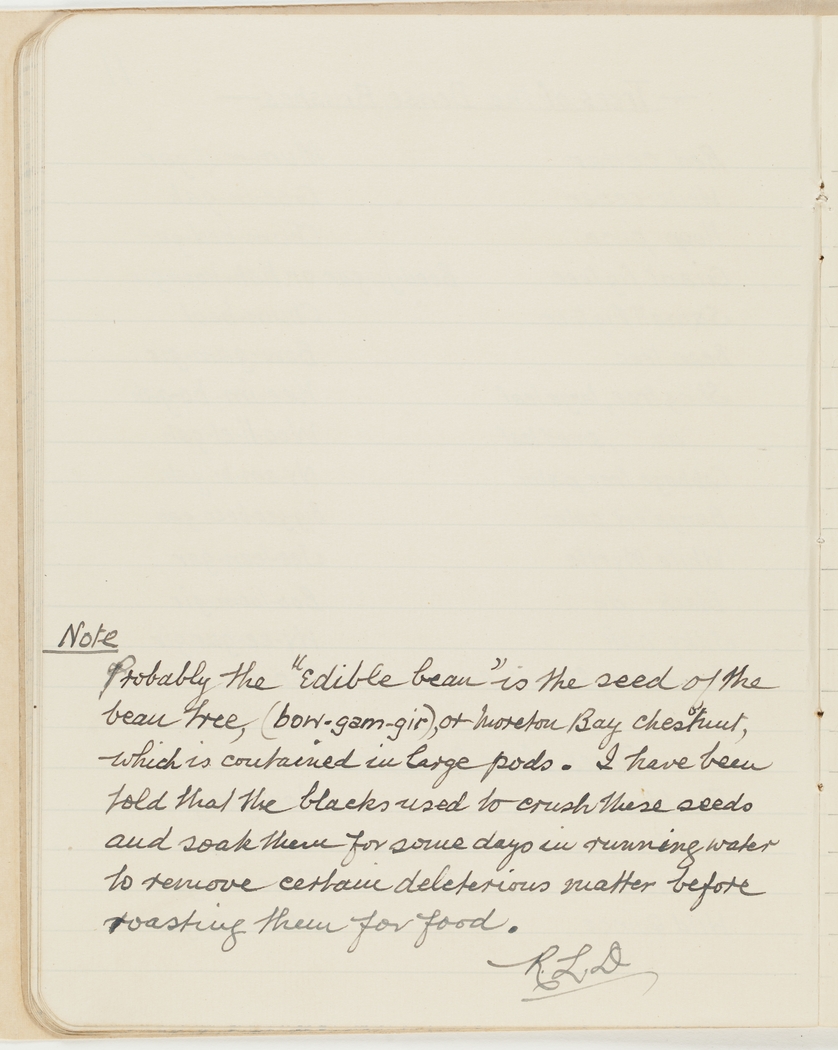 Note
Probably the "Edible bean" is the seed of the
bean tree, (bow-gam-gir), or Moreton Bay chestnut,
which is contained in large pods. I have been
told that the blacks used to crush these seeds
and soak them for some days in running water
to remove certain deleterious matter before
roasting them for food.
R.L.D